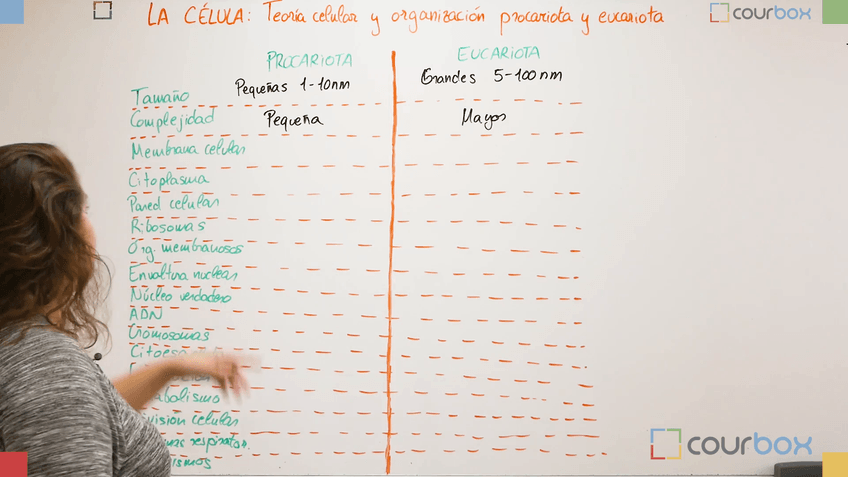 LA CÉLULA: Teoría celular y organización procariota y eucariota
courbox
PROCARIOTA EUCARIOTA
Tamaño Pequeñas 1-10nm Grandes 5-100nm
Complejidad Pequeña Mayor
Membrana celular
Citoplasma
Pared celular
Ribosomas
Org. membranosos
Envoltura nuclear
Núcleo verdadero
ADN
Cromosomas
courbox